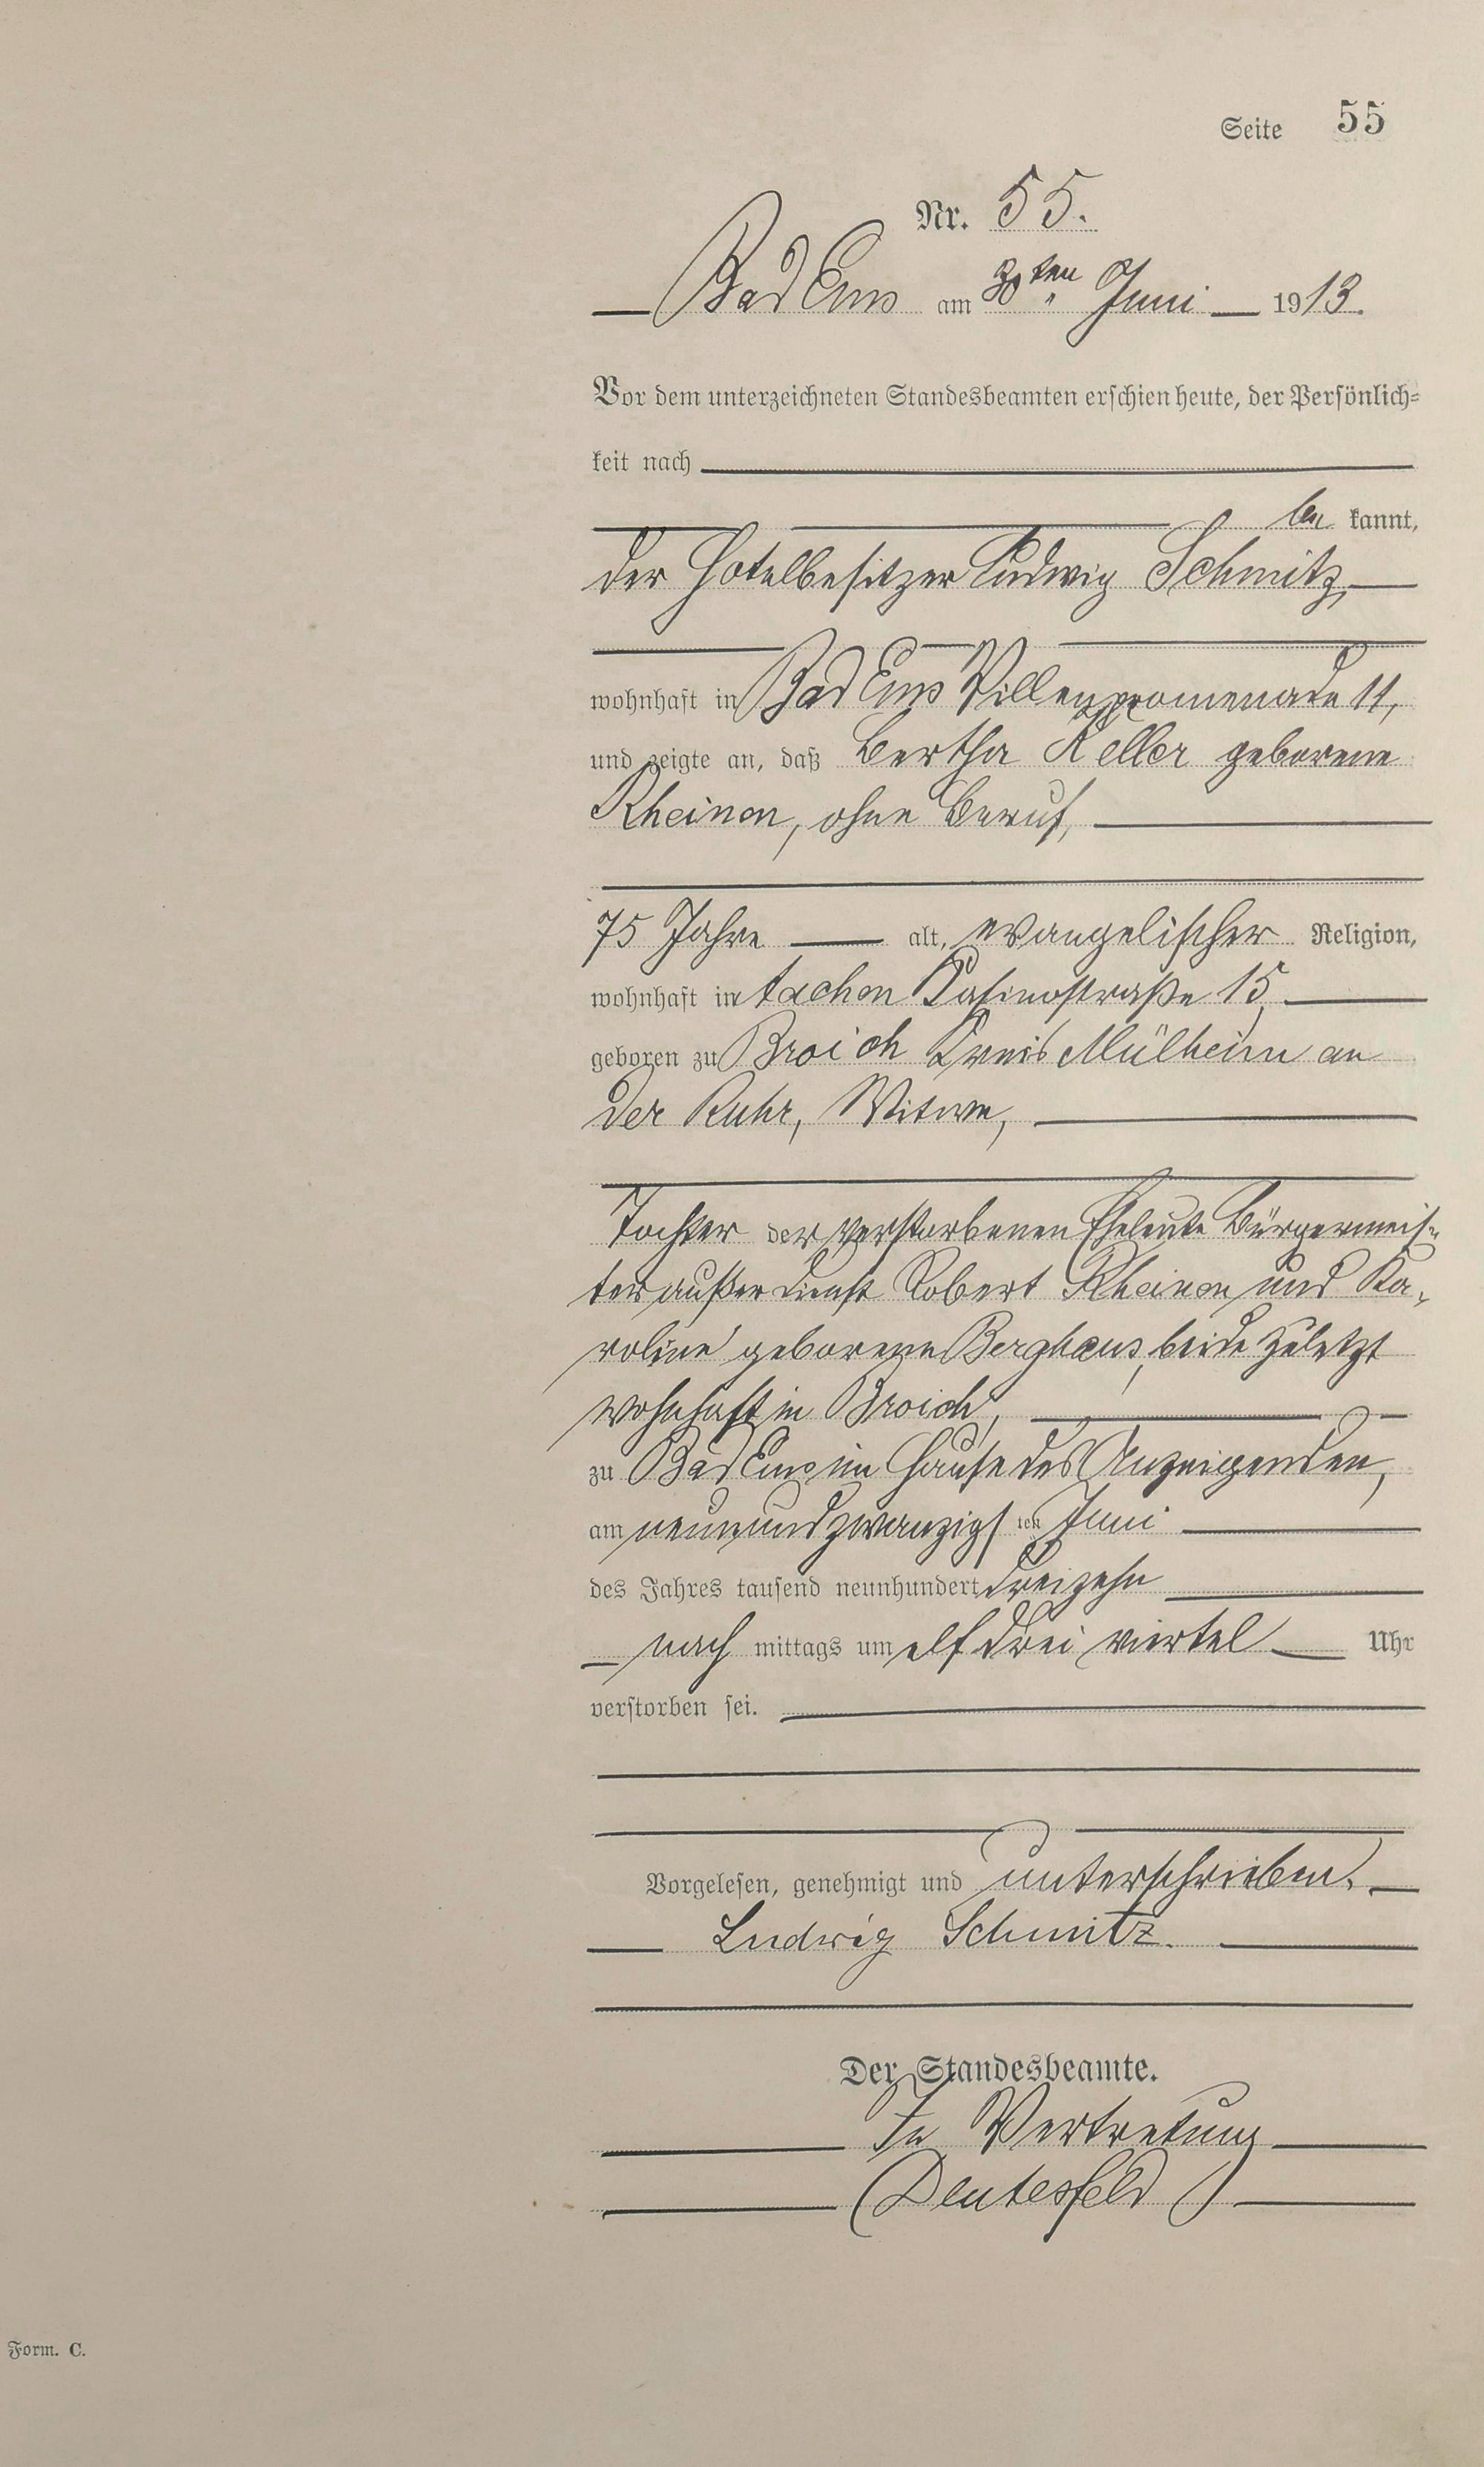 Seite 55
Nr. 55.
Bad Ems am 30ten Juni 1913.
Vor dem unterzeichneten Standesbeamten erschien heute, der Persönlich=
keit nach
be kannt,
der Hotelbesitzer Ludwig Schmitz,
wohnhaft in Bad Ems Villenpromenade 11,
und zeigte an, daß Bertha Keller geborene
Rheinen, ohne Beruf,
75 Jahre alt, evangelischer Religion,
wohnhaft in Aachen Kasinostraße 15,
geboren zu Broich Kreis Mülheim an
der Ruhr, Witwe,
Tochter der verstorbenen Eheleute Bürgermeis=
ter außer Dienst Robert Rheinen und Ka=
roline geborene Berghaus, beide zuletzt
wohnhaft in Broich,
zu Bad Ems im Hause des Anzeigenden,
am neunundzwanzigsten Juni
des Jahres tausend neunhundert dreizehn
nach mittags um elf drei viertel Uhr
verstorben sei.
Vorgelesen, genehmigt und unterschrieben.
Ludwig Schmitz.
Der Standesbeamte.
In Vertretung
(Deutesfeld)
Form. C.